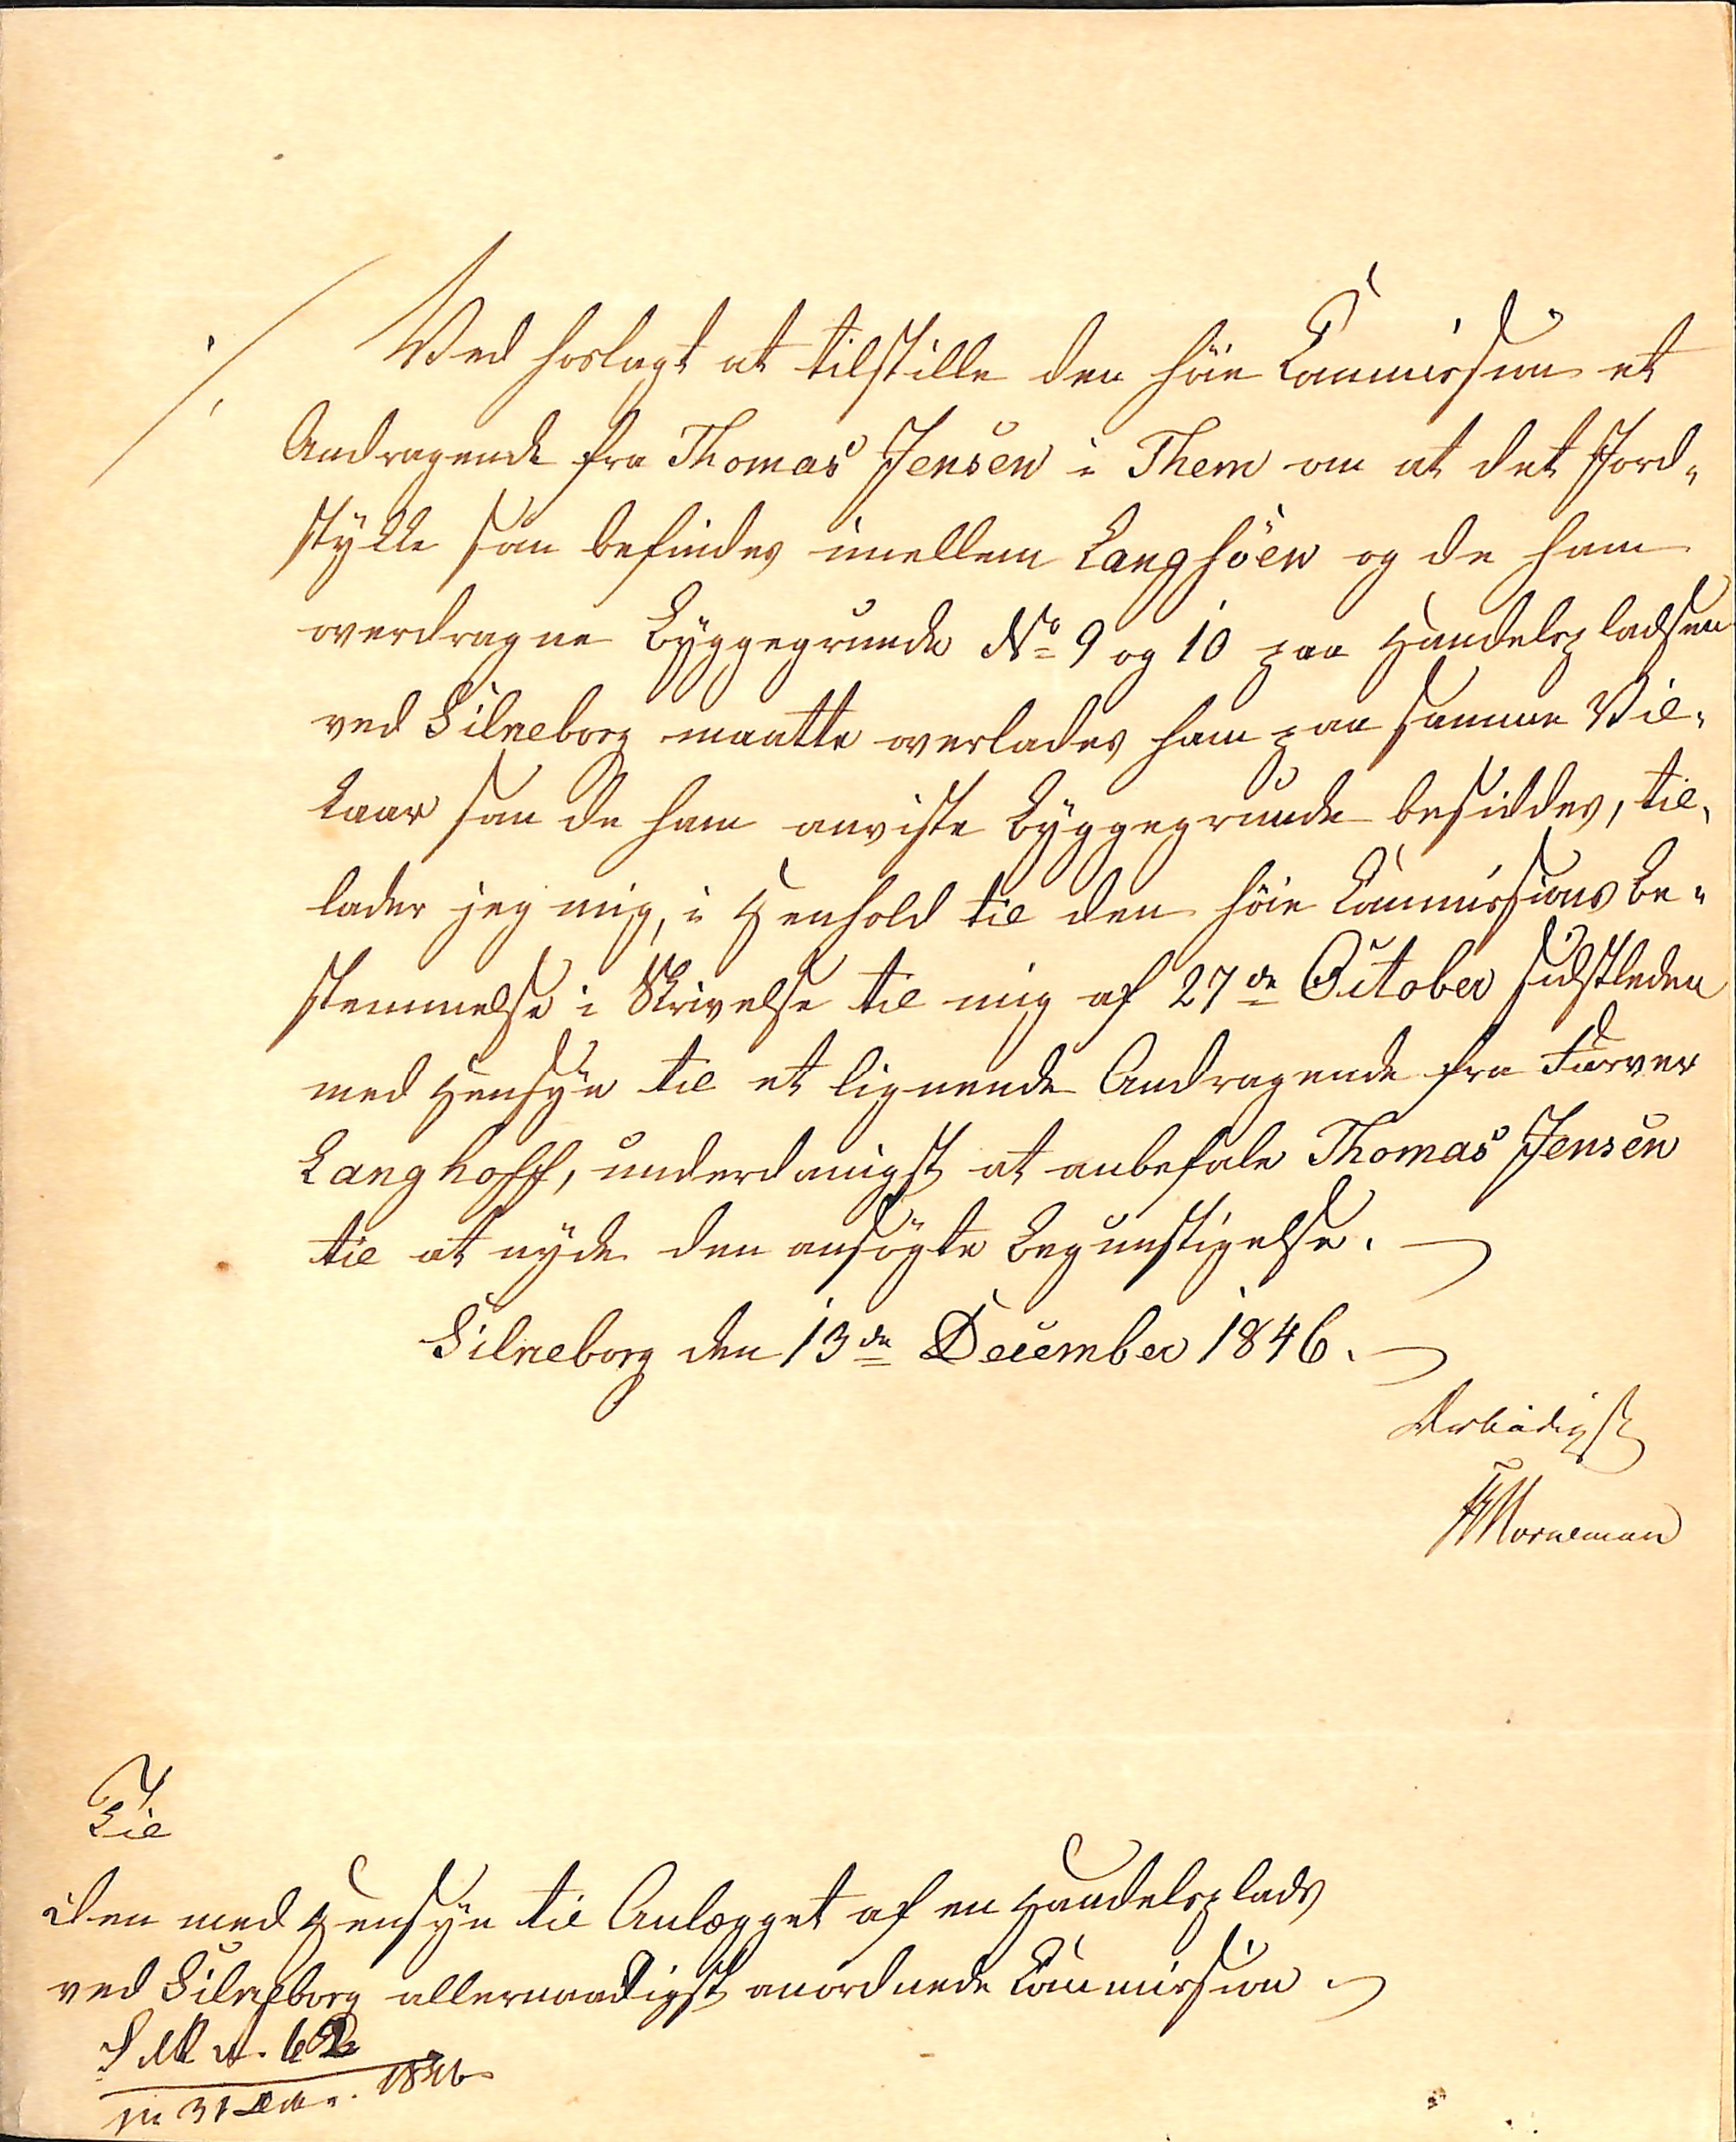 Ved hoslagt at tilstille den høie Commission et
Andragende fra Thomas Jensen i Them om at det Jord-
stykke som befindes imellem Langhöen og de ham
overdragne Byggegrunde No 9 og 10 paa Handelspladsen
ved Silkeborg maatte overlades ham paa samme Vil-
kaar som de ham anviste Byggegrunde besiddes, til-
lader jeg mig, i Henhold til den høie Commissions Be-
stemmelse i Skrivelse til mig af 27de October sidstleden
med Hensyn til et lignende Andragende fra Farver
Langhoff, underdanigst at anbefale Thomas Jensen
til at nyde den ansøgte Begunstigelse.
Silkeborg den 13de December 1846.
Ærbødigst
Til
den med Hensyn til Anlægget af en Handelsplads
ved Silkeborg allernaadigst anordnede Commission
31 1846